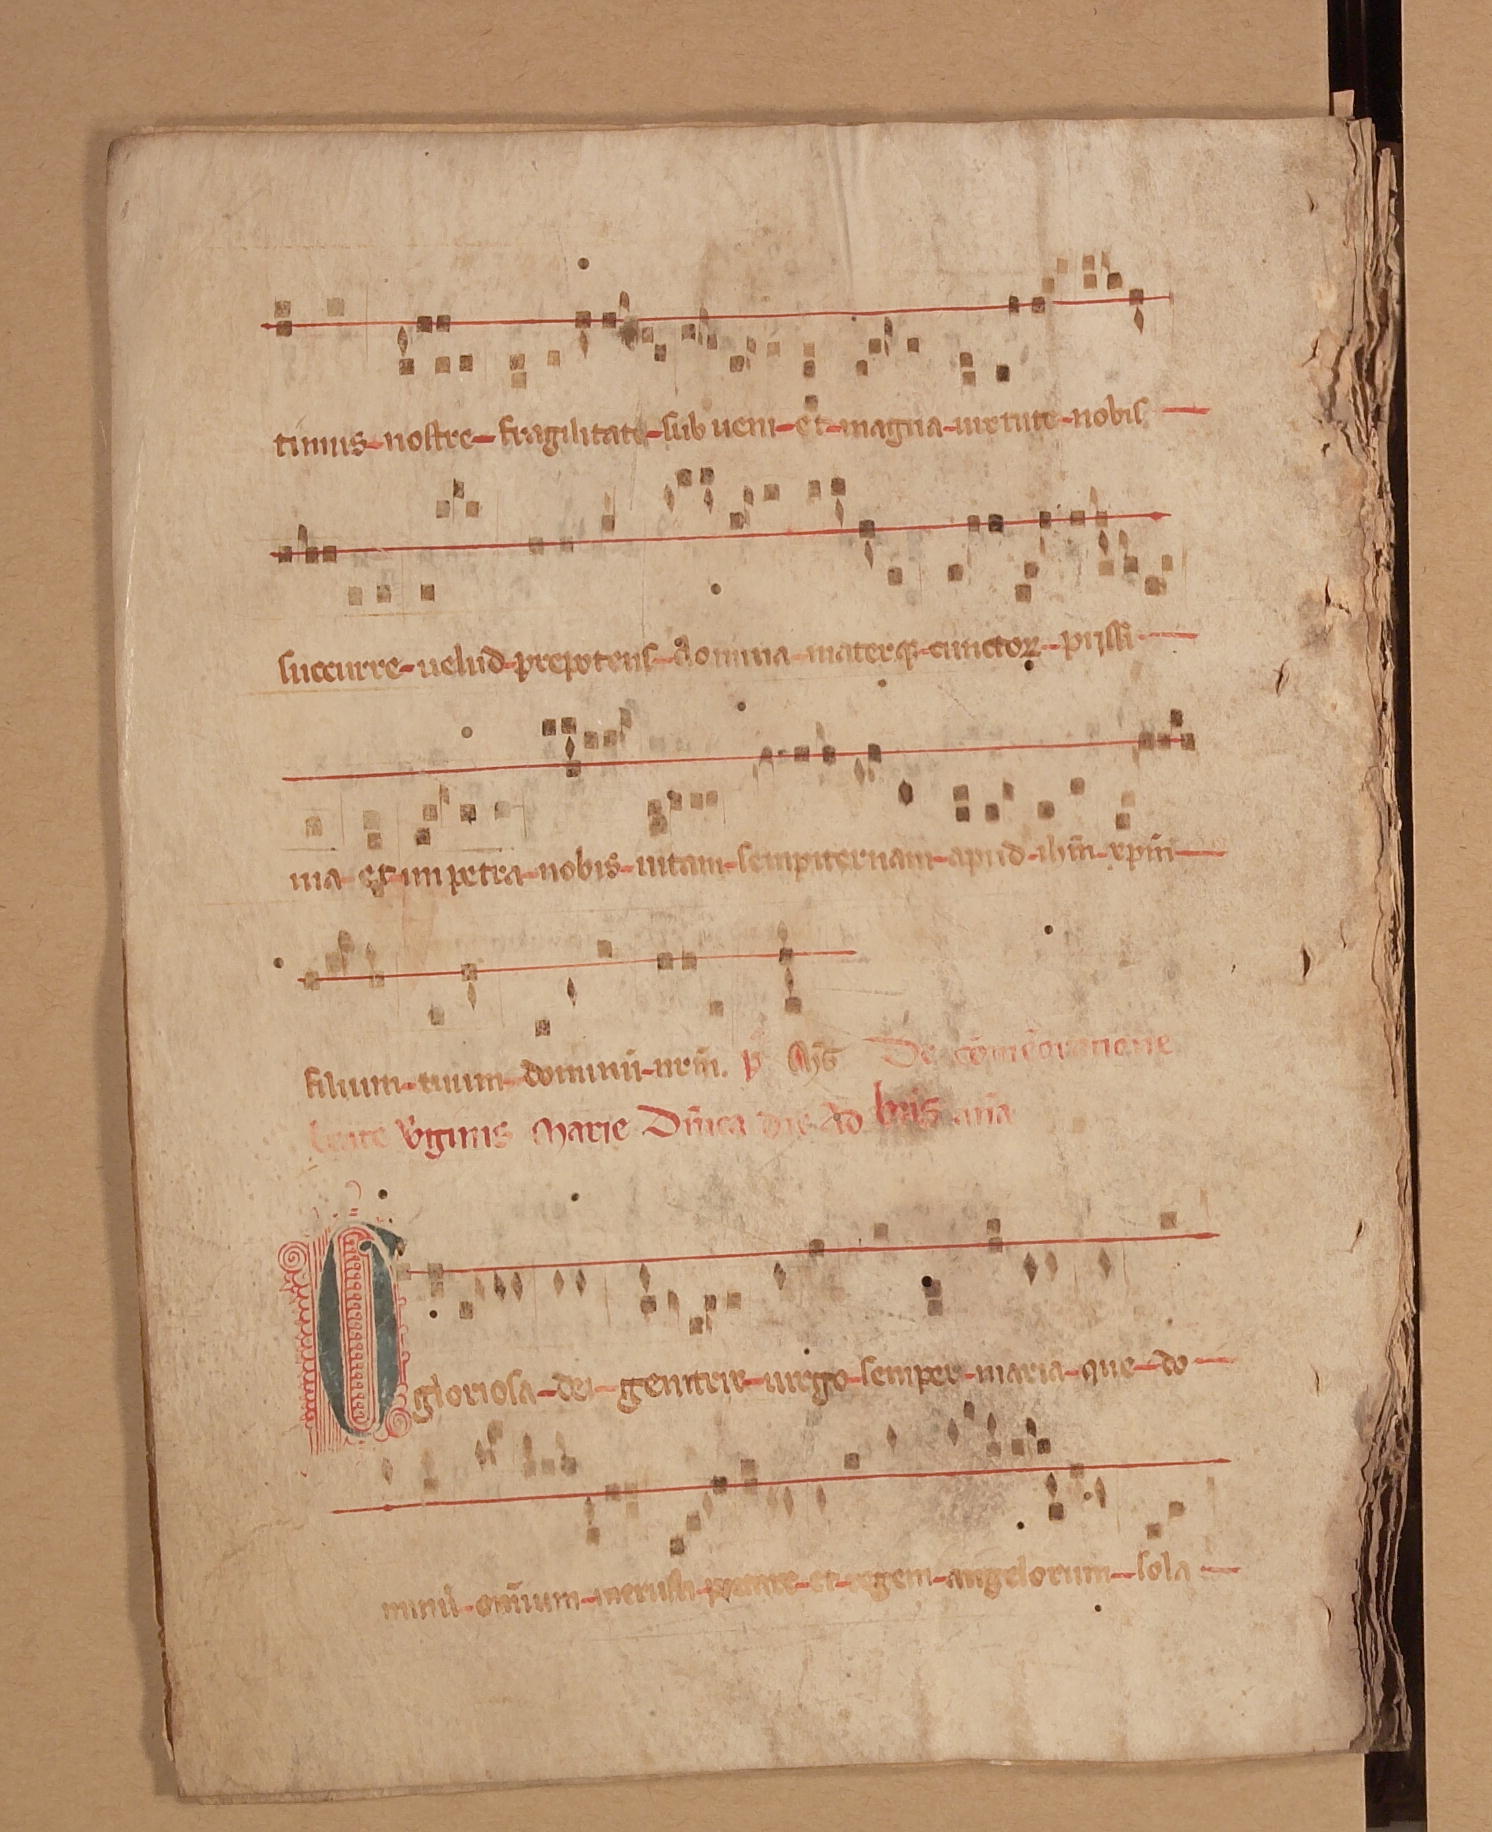 timus nostre fragilitate sub ueni et magna uirtute nobis
succurre uelud prepotens domina materq; cunctoꝝ pijssi
ma et impetra nobis uitam sempiternam apud ihm̄ xpm̄
filium tuum dominū nrm̄. p̄ De cōmeōratione
beate v̓ginis Marie Dn̄ica die Ad ana
O gloriosa dei genitrix uirgo semper maria que do
minū omīum meruisti portare et regem angelorum sola